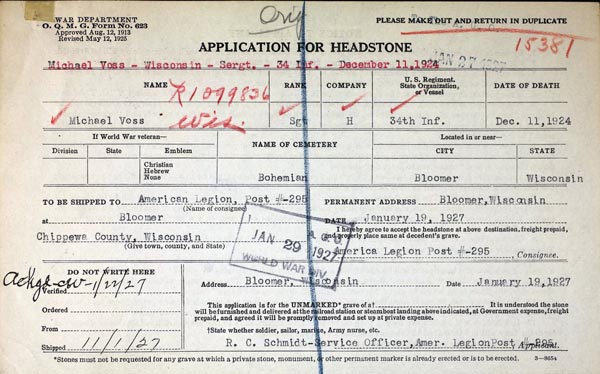 WAR DEPARTMENT
O. Q. M. G. Form No. 623
Approved Aug. 12, 1913
Revised May 12, 1925
Orig
PLEASE MAKE OUT AND RETURN IN DUPLICATE
15381
APPLICATION FOR HEADSTONE
JAN 27 1927
Michael Voss - Wisconsin - Sergt. - 34 Inf. - December 11, 1924
NAME
R1099836
RANK
COMPANY
U. S. Regiment,
State Organization,
or Vessel
DATE OF DEATH
Michael Voss
Wis.
Sgt
H
34th Inf.
Dec. 11,1924
If World War veteran—
NAME OF CEMETERY
Located in or near—
Division
State
Emblem
CITY
STATE
Christian
Hebrew
None
Bohemian
Bloomer
Wisconsin
TO BE SHIPPED TO American Legion, Post #-295
(Name of consignee)
PERMANENT ADDRESS Bloomer,Wisconsin
at Bloomer
DATE January 19, 1927
Chippewa County, Wisconsin
(Give town, county, and State)
I hereby agree to accept the headstone at above destination, freight prepaid,
and properly place same at decedent's grave.
A.G.O.
JAN 29 1927
WORLD WAR DIV.
America Legion Post #-295, Consignee.
DO NOT WRITE HERE
Verified 1/22/27
Address Bloomer, Wisconsin Date January 19,1927
Ordered
This application is for the UNMARKED* grave of a† It is understood the stone
will be furnished and delivered at the railroad station or steamboat landing above indicated, at Government expense, freight
prepaid, and agreed it will be promptly removed and set up at private expense.
From
†State whether soldier, sailor, marine, Army nurse, etc.
Shipped 11/1/27
R. C. Schmidt-Service Officer,Amer. LegionPost #-295, Applicant.
*Stones must not be requested for any grave at which a private stone, monument, or other permanent marker is already erected or is to be erected.
3—8654